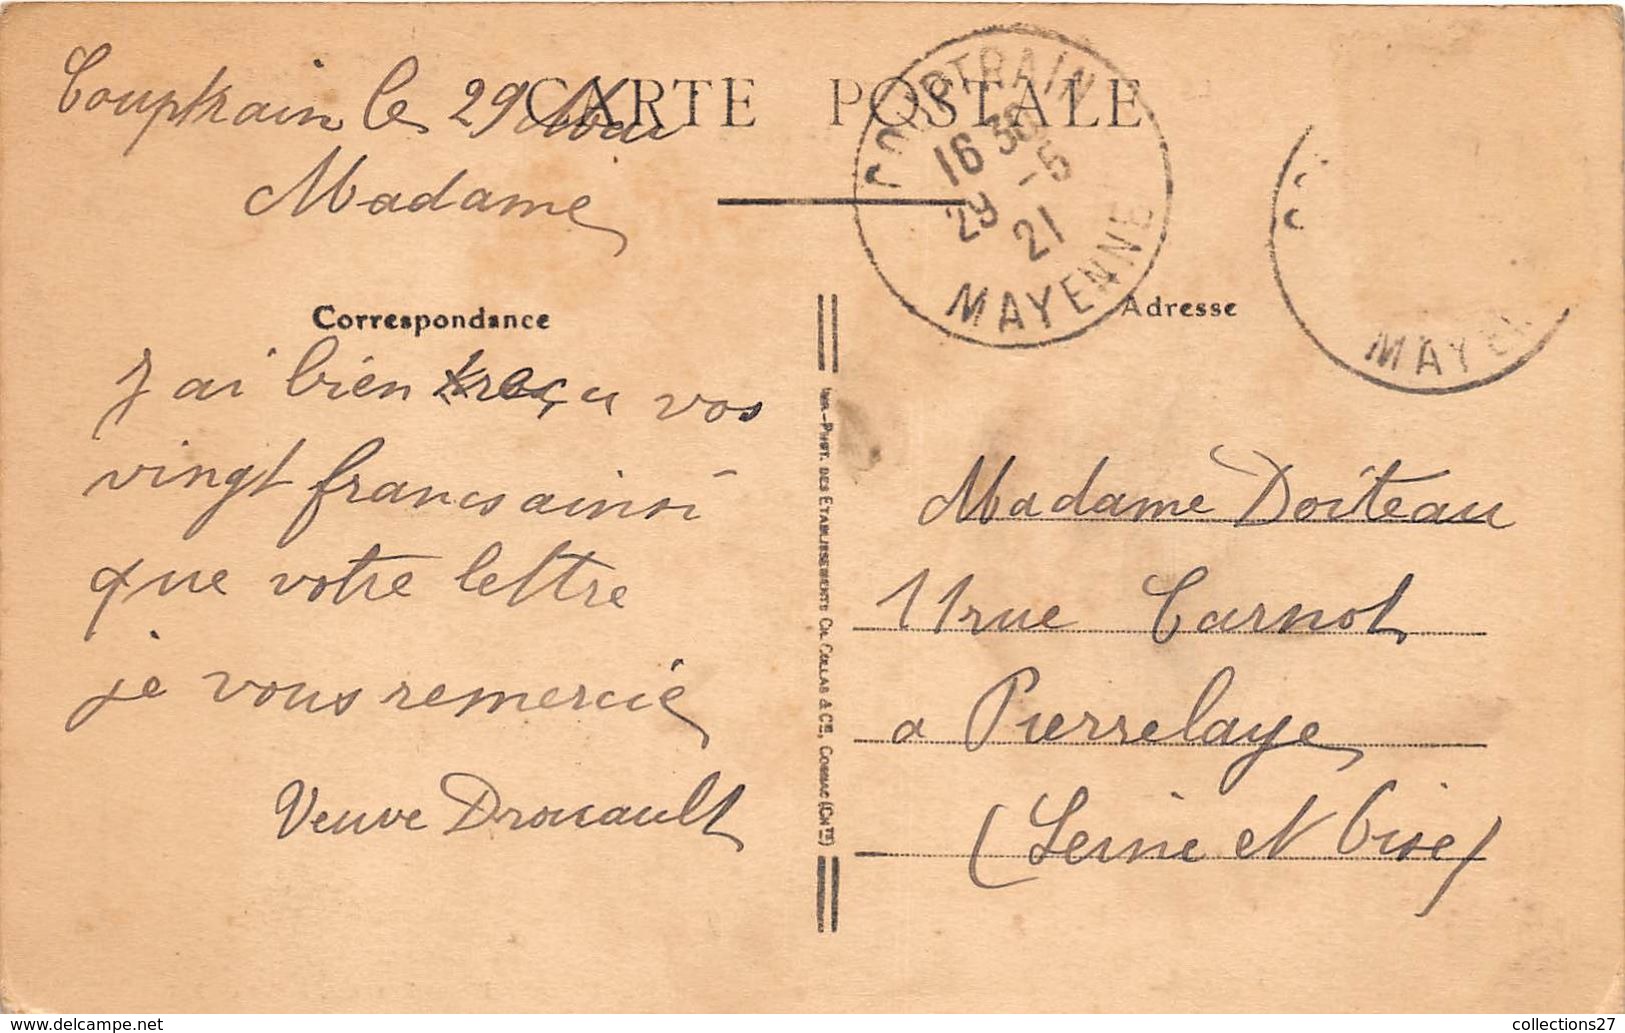 CARTE POSTALE
Couptrain le 29 Mai
Madame
Correspondance
J'ai bien reçu vos
vingt francs ainsi
que votre lettre
je vous remercie
Veuve Drouault
IMP.-PHOT. DES ETABLISSEMENTS CH. COLLAS & Cie, COGNAC (CHte)
COUPTRAIN
16 30
29 -5
21
MAYENNE
MAYEN
Adresse
Madame Doiteau
11 rue Carnot
a Pierrelaye
(Seine et Oise)
collections27